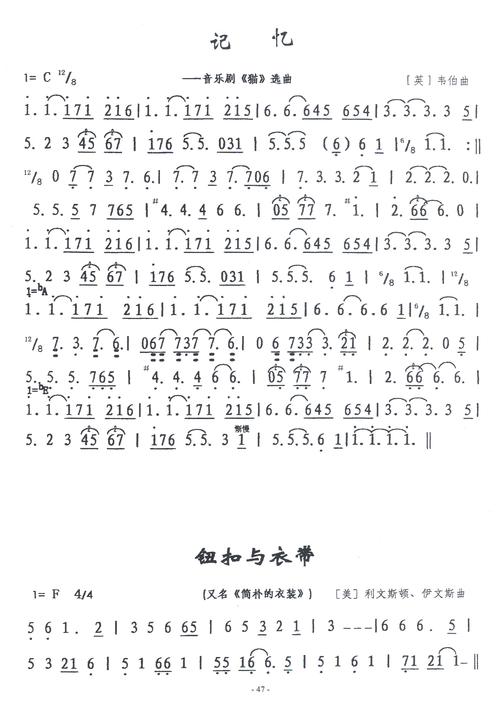 记 忆
1= C 12/8 ——音乐剧《猫》选曲 [英] 韦伯曲
1. 1. 171 216 | 1. 1. 171 215 | 6. 6. 645 654 | 3. 3. 3. 3 5 |
5. 2 3 45 67 | 176 5. 5. 031 | 5. 5. 5 (6) 6 1 | 6/8 1. 1. :||
12/8 0 7 7 3 7. 6. | 7. 7 3 7. 706 | 7. 3. 3. 2 1 | 2. 2. 2. 0. |
5. 5. 5 7 765 | #4. 4. 4 6 6. | 05 77 7. #1. | 2. 66 6. 0 |
1. 1. 171 216 | 1. 1. 171 215 | 6. 6. 645 654 | 3. 3. 3. 3 5 |
5. 2 3 45 67 | 176 5. 5. 031 | 5. 5. 5. 6 1 | 6/8 1. 1. | 12/8
1=bA
1. 1. 171 216 | 1. 1. 171 215 | 6. 6. 6. 6 1 | 6/8 1. 1. |
12/8 7. 3. 7. 6. | 067 737 7. 6. | 0 6 733 3. 21 | 2. 2. 2. 0 5 |
5. 5. 5. 765 | #4. 4. 4 6 6. | 05 77 7 #1. | 2. 66 6. 6. |
1=bE
1. 1. 171 216 | 1. 1. 171 215 | 6. 6. 645 654 | 3. 3. 3. 3 5 |
5. 2 3 45 67 | 176 5. 5. 3 1 | 5. 5. 5. 6 1 | 1. 1. 1. 1. ||
渐慢
钮扣与衣带
1= F 4/4 (又名《简朴的衣装》) [美] 利文斯顿、伊文斯曲
5 6 1. 2 | 3 5 6 65 | 6 5 3 2 1 | 3 --- | 6 6 6. 5 |
5 3 21 6 | 5 1 61 1 | 55 16 6. 5 | 5 1 6 1 | 71 21 1 -- ||
- 47 -